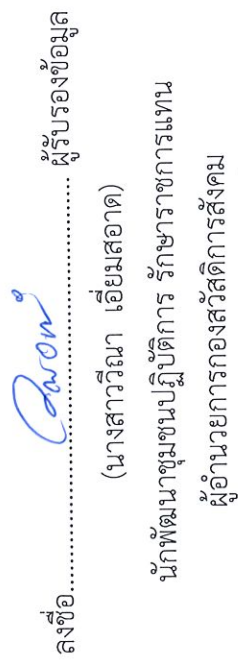 ลงชื่อ.......................................................ผู้รับรองข้อมูล
(นางสาววีณา เอี่ยมสอาด)
นักพัฒนาชุมชนปฏิบัติการ รักษาราชการแทน
ผู้อำนวยการกองสวัสดิการสังคม